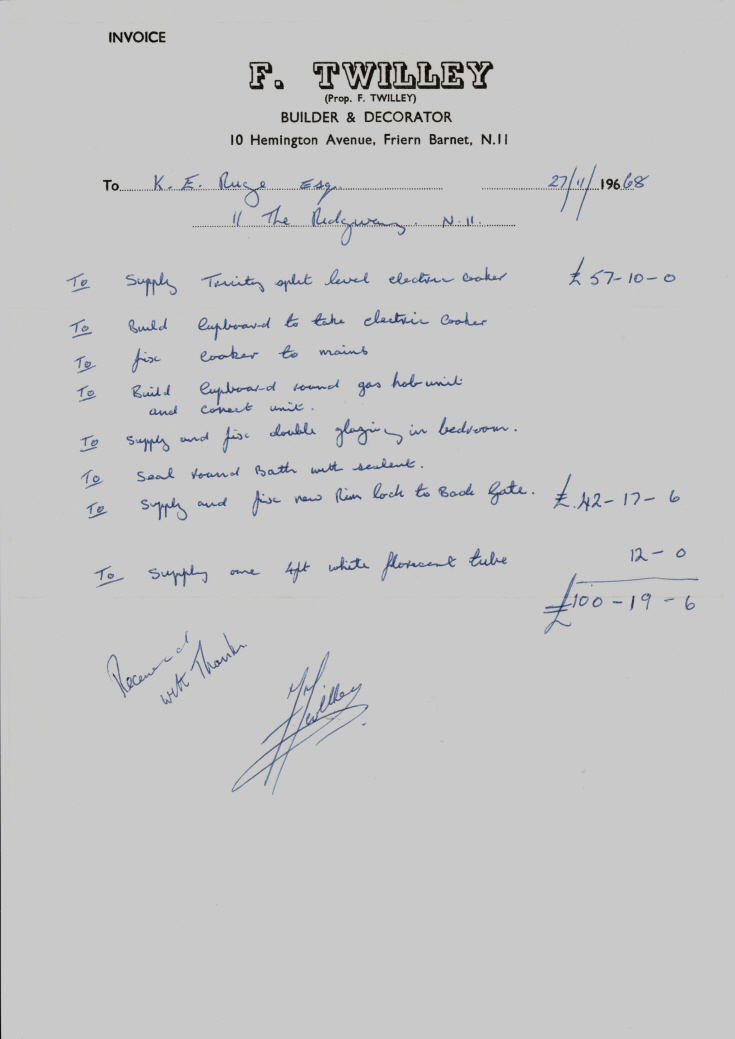 INVOICE
F. TWILLEY
(Prop. F. TWILLEY)
BUILDER & DECORATOR
10 Hemington Avenue, Friern Barnet, N.11
To K. E. Ruge Esq. 27/11/196 68
11 The Ridgway. N.11.
To Supply Tricity split level electric cooker £57-10-0
To Build Cupboard to take electric cooker
To fix cooker to mains
To Build Cupboard round gas hob unit
and conect unit.
To supply and fix double glazing in bedroom.
To Seal round Bath with sealent.
To Supply and fix new Rim lock to Back Gate. £.42-17-6
To Supply one 4ft white florescent tube 12-0
£100-19-6
Received
with Thanks
F Twilley